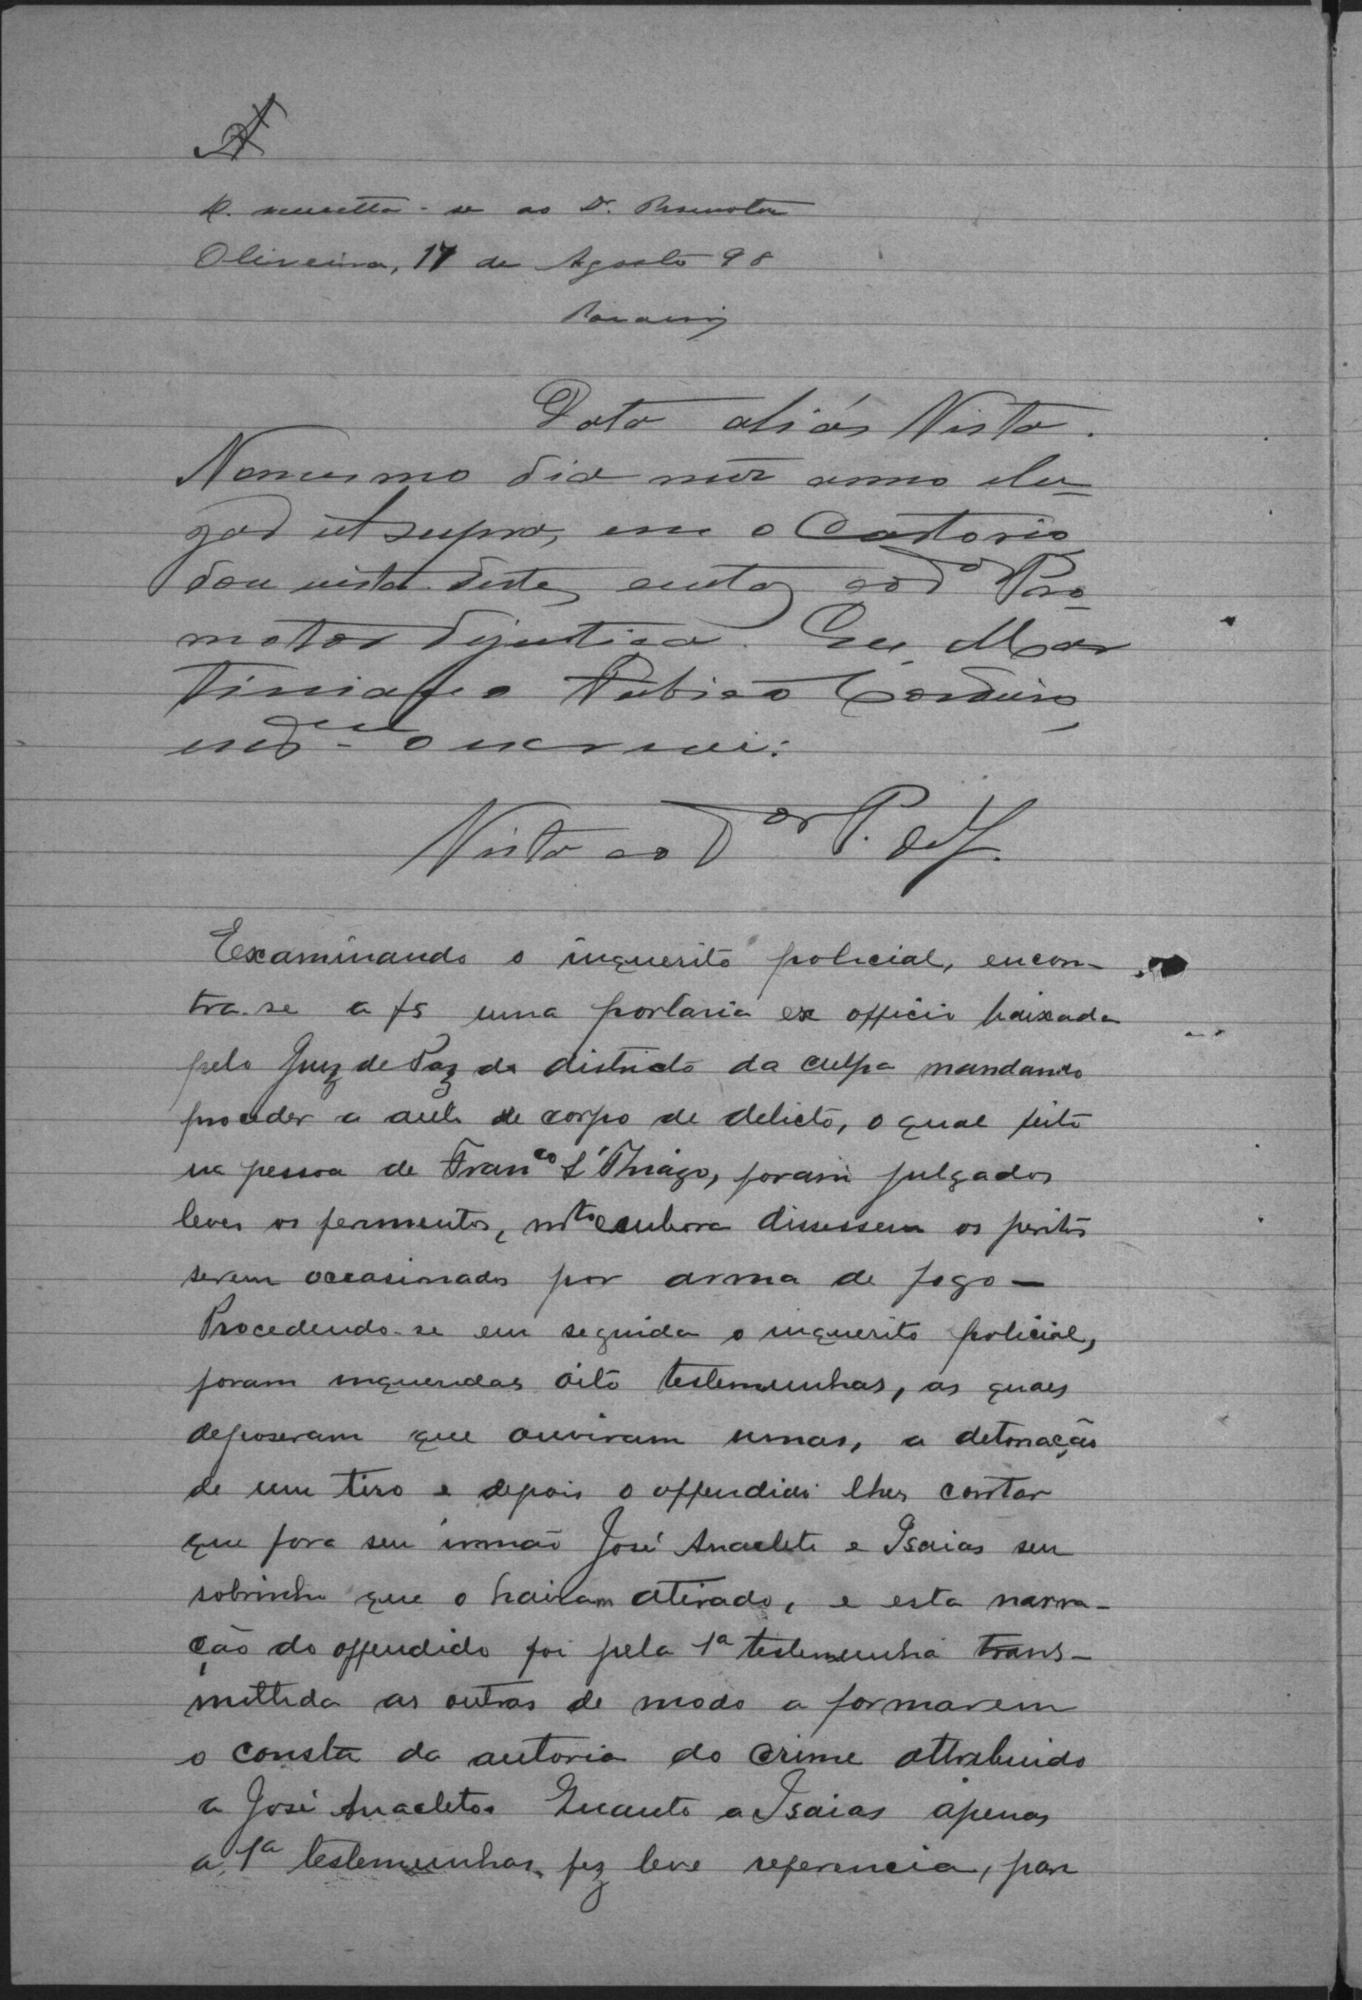 A
R. remetta-se ao Dr. Promotor
Oliveira, 17 de Agosto 98
Data aliás Vista.
No mesmo dia mez anno e lu-
gar ut supra, em o Cartorio
dou vista destes autos ao Dr Pro-
motor de justica. Eu, Mar
tiniano
o escrevi:
Vista ao Dor P. de J.
Examinando o inquerito policial, encon-
tra-se a fs uma portaria ex officio baixada
pelo Juiz de Paz do districto da culpa mandando
proceder a auto de corpo de delicto, o qual feito
na pessoa de Franco S'Thiago, foram julgados
leves os ferimentos, embora dissessem os peritos
serem occasionados por arma de fogo —
Procedendo-se em seguida o inquerito policial,
foram inqueridas oito testemunhas, as quaes
depozeram que ouviram umas, a detonação
de um tiro e depois o offendido lhes contar
que fora seu irmão José Anacleto e Isaias seu
sobrinho que o haviam atirado, e esta narra-
ção do offendido foi pela 1ª testemunha trans-
mettida as outras de modo a formarem
o consta da autoria do crime attribuido
a José Anacleto. Quanto a Isaias apenas
a 1ª testemunha fez leve referencia, por